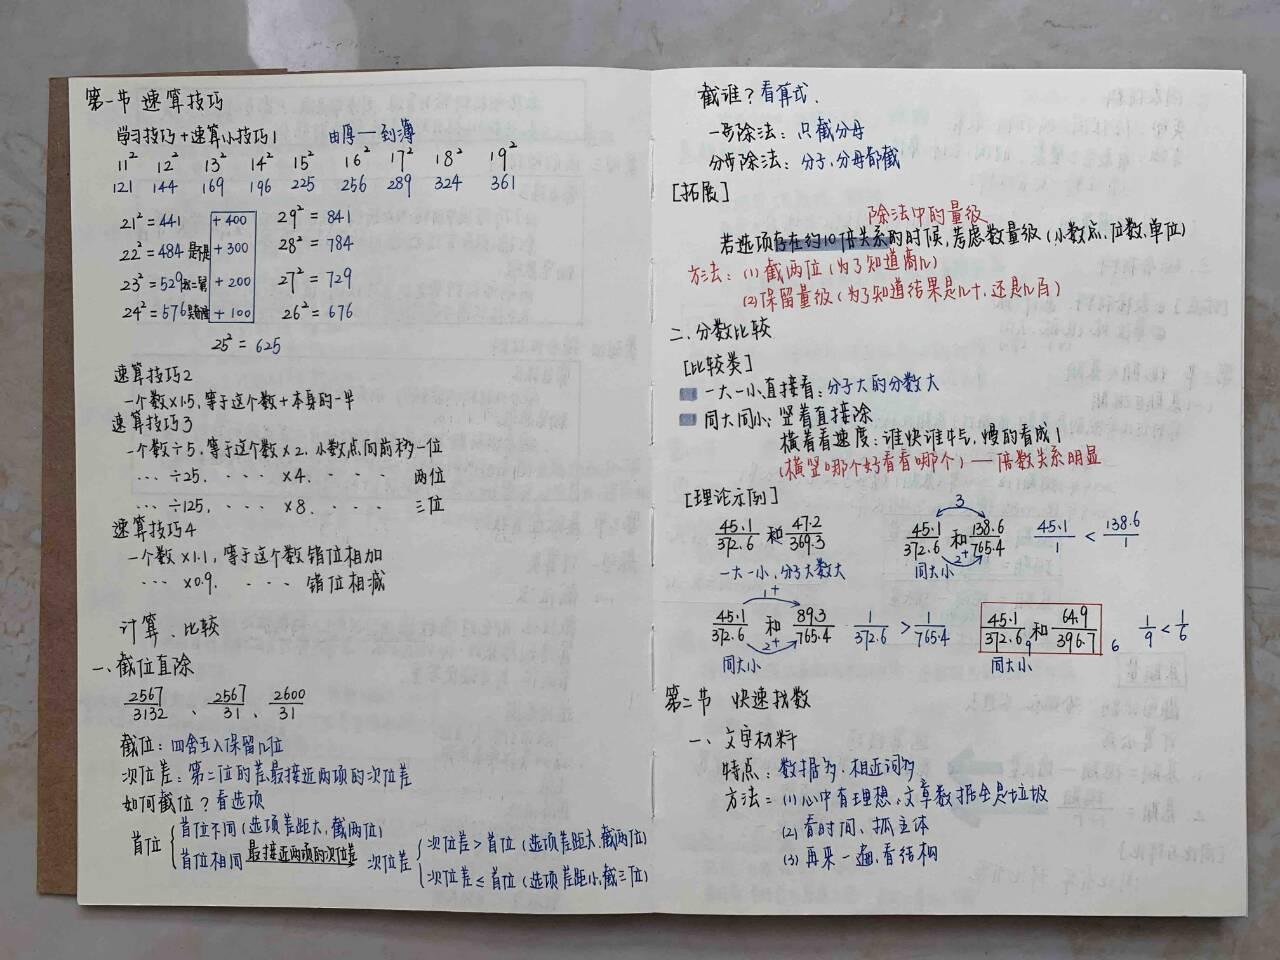 第一节 速算技巧
学习技巧+速算小技巧1 由厚一到薄
11² 12² 13² 14² 15² 16² 17² 18² 19²
121 144 169 196 225 256 289 324 361
21²=441 +400 29²=841
22²=484 +300 28²=784
23²=529 +200 27²=729
24²=576 +100 26²=676
25²=625
速算技巧2
一个数×1.5,等于这个数+本身的一半
速算技巧3
一个数÷5,等于这个数×2,小数点向前移一位
… ÷25, · · · ×4, · · · · 两位
… ÷125, · · · ×8, · · · · 三位
速算技巧4
一个数×1.1,等于这个数错位相加
… ×0.9, · · · 错位相减
计算、比较
一、截位直除
2567/3132、2567/31、2600/31
截位:四舍五入保留几位
次位差:第二位的差,最接近两项的次位差
如何截位?看选项
首位 首位不同(选项差距大,截两位)
首位相同 最接近两项的次位差 次位差 次位差>首位(选项差距大,截两位)
次位差≤首位(选项差距小,截三位)
截谁?看算式.
一步除法:只截分母
分步除法:分子、分母都截
[拓展]
除法中的量级
若选项存在约10倍关系的时候,考虑数量级(小数点、位数、单位)
方法:(1)截两位(为了知道商几)
(2)保留量级(为了知道结果是几十,还是几百)
二、分数比较
[比较类]
一大一小,直接看:分子大的分数大
同大同小:竖着直接除
横着看速度:谁快谁牛气,慢的看成1
(横竖哪个好看看哪个)——倍数关系明显
[理论示例]
45.1/372.6和47.2/369.3 3 45.1/372.6和138.6/765.4 2+ 45.1/1<138.6/1
一大一小,分子大数大 同大小
1+ 45.1/372.6和89.3/765.4 2+ 1/372.6>1/765.4 45.1/372.6和64.9/396.7 9 6 1/9<1/6
同大小 同大小
第二节 快速找数
一、文字材料
特点:数据多,相近词多
方法=(1)心中有理想,文章数据全是垃圾
(2)看时间、抓主体
(3)再来一遍,看结构